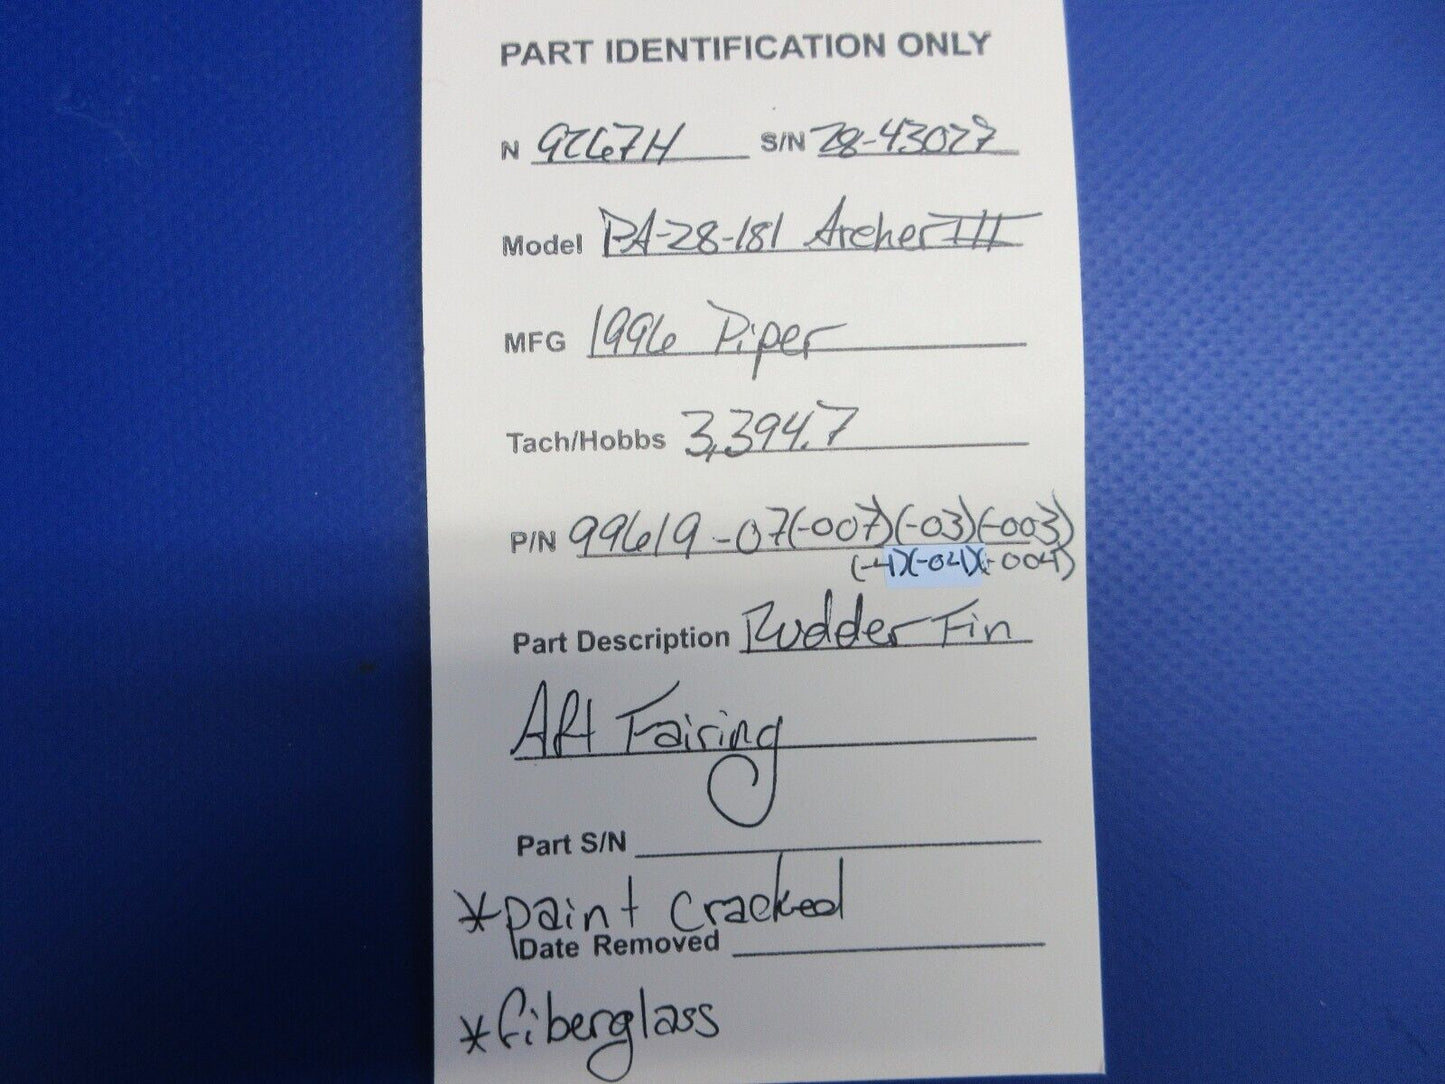 PART IDENTIFICATION ONLY
N 9267H S/N 28-43027
Model PA-28-181 Archer III
MFG 1996 Piper
Tach/Hobbs 3,394.7
P/N 99619-07(-007)(-03)(-003)
(-4)(-04)(-004)
Part Description Rudder Fin
Aft Fairing
Part S/N
*paint cracked
Date Removed
*fiberglass